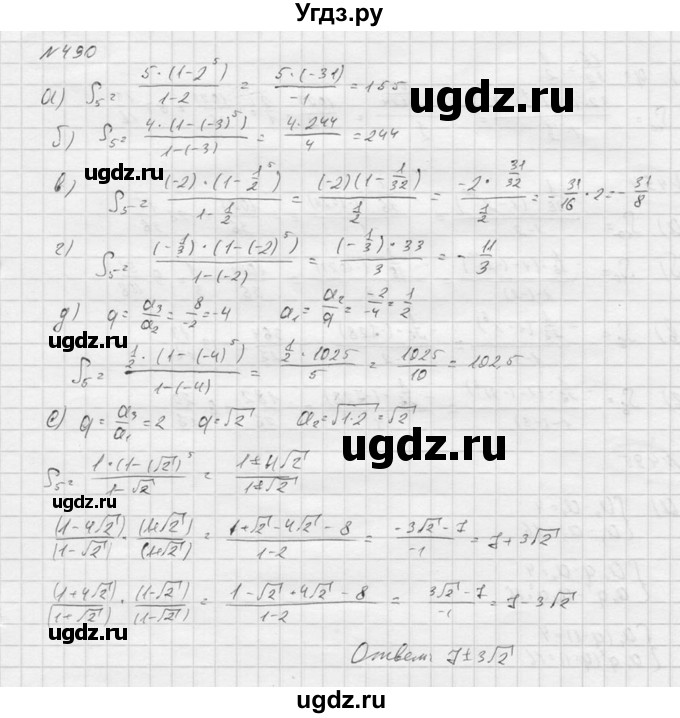 Угдз.ру
№490
а) S₅ = 5·(1-2⁵)/1-2 = 5·(-31)/-1 = 155
ugdz.ru
б) S₅ = 4·(1-(-3)⁵)/1-(-3) = 4·244/4 = 244
ugdz.ru ugdz.ru
в) S₅ = (-2)·(1-1/2⁵)/1-1/2 = (-2)(1-1/32)/1/2 = -2·31/32/1/2 = -31/16·2 = -31/8
г) S₅ = (-1/3)·(1-(-2)⁵)/1-(-2) = (-1/3)·33/3 = -11/3
ugdz.ru
д) q = a₃/a₂ = 8/-2 = -4 a₁ = a₂/q = -2/-4 = 1/2
S₅ = 1/2·(1-(-4)⁵)/1-(-4) = 1/2·1025/5 = 1025/10 = 102,5
ugdz.ru
е) q = a₃/a₁ = 2 q = √2 a₂ = √1·2 = √2
ugdz.ru
S₅ = 1·(1-(√2)⁵/1-√2 = 1±4√2/1±√2
ugdz.ru
(1-4√2)/(1-√2) · (1+√2)/(1+√2) = 1+√2-4√2-8/1-2 = -3√2-7/-1 = 7+3√2
ugdz.ru
(1+4√2)/(1+√2) · (1-√2)/(1-√2) = 1-√2+4√2-8/1-2 = 3√2-7/-1 = 7-3√2
Ответ: 7±3√2
ugdz.ru
ugdz.ru